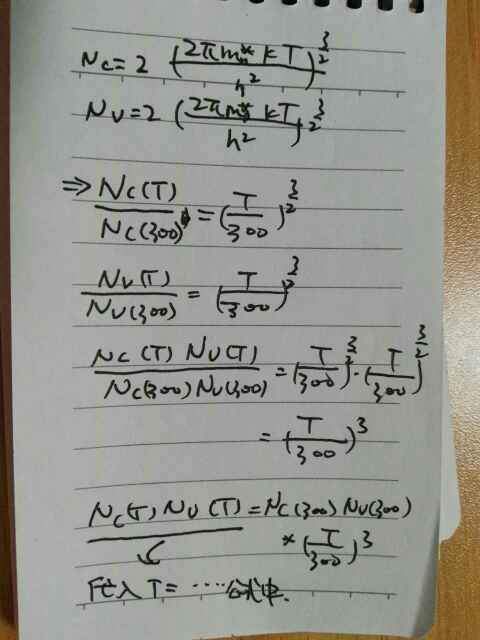 Nc = 2 (2πmn* kT / h²)^3/2
Nv = 2 (2πmp* kT / h²)^3/2
⇒ Nc(T) / Nc(300) = (T/300)^3/2
Nv(T) / Nv(300) = (T/300)^3/2
Nc(T) Nv(T) / Nc(300) Nv(300) = (T/300)^3/2 · (T/300)^3/2
= (T/300)^3
Nc(T) Nv(T) = Nc(300) Nv(300)
* (T/300)^3
代入 T = ····公式中.